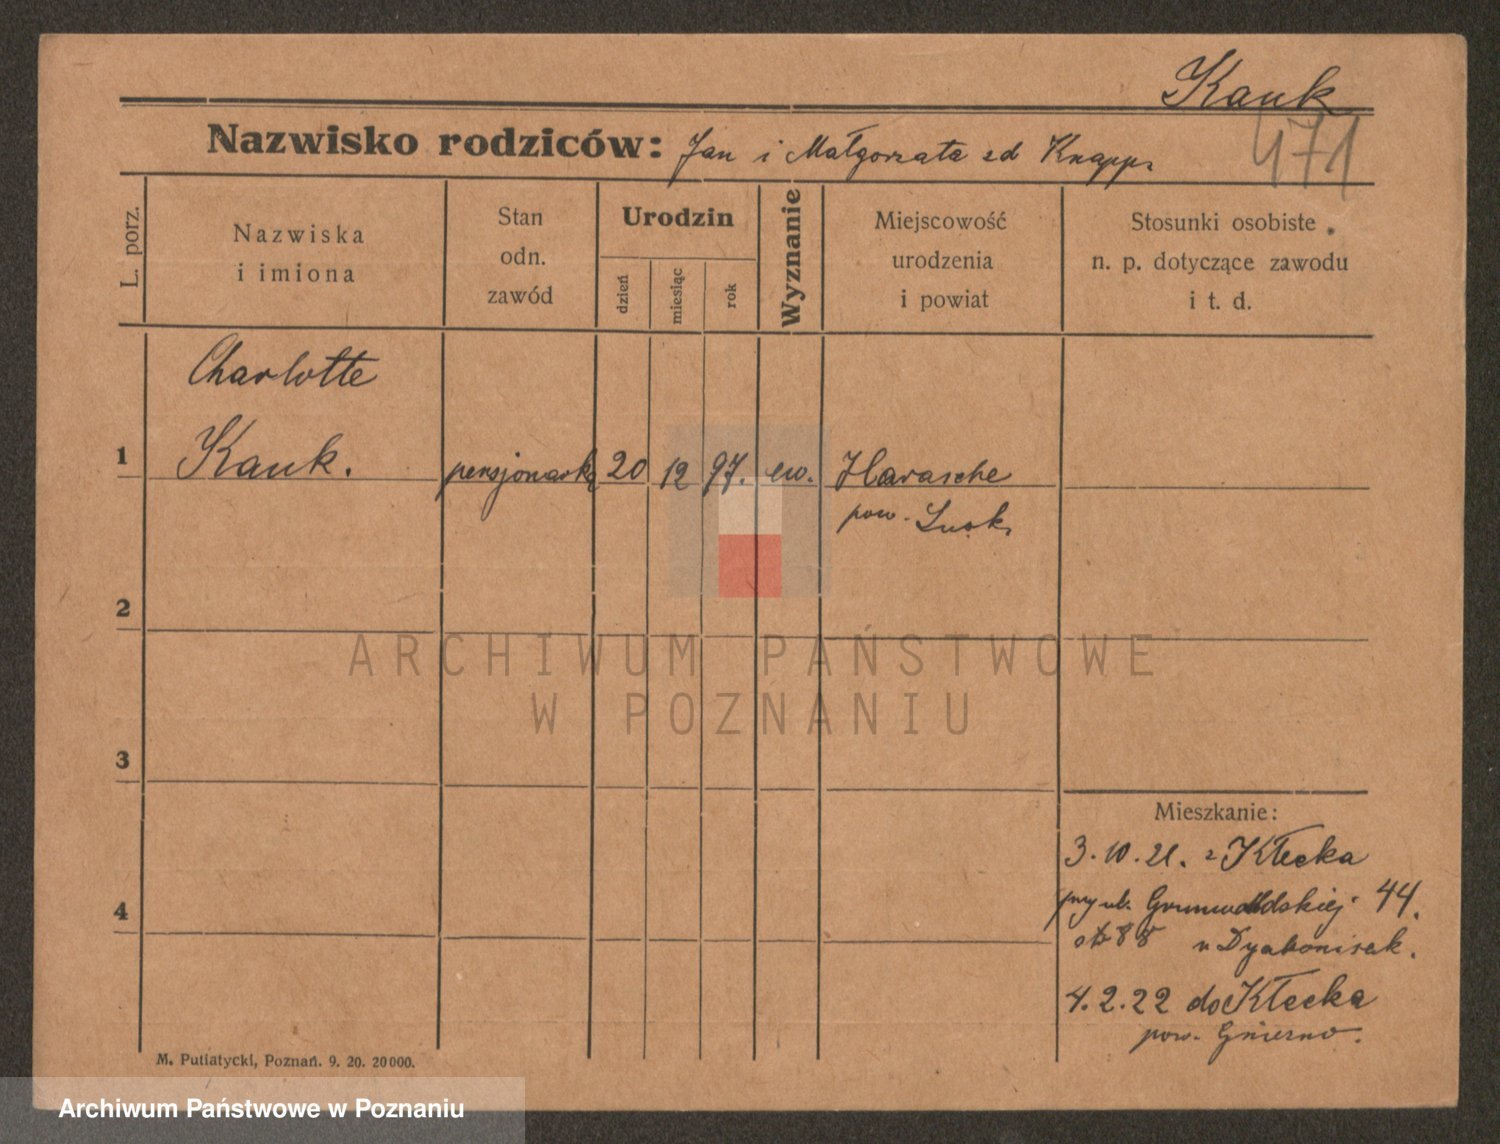 Kauk
471
Nazwisko rodziców: Jan i Małgorzata zd Knapp.
L. porz.
Nazwiska i imiona
Stan odn. zawód
Urodzin
dzień
miesiąc
rok
Wyznanie
Miejscowość urodzenia i powiat
Stosunki osobiste n. p. dotyczące zawodu i t. d.
Charlotte
1 Kauk. pensjonarka 20 12 97. ew. Harasche
pow. Łuck
2
3
4
Mieszkanie:
3.10.21. z Kłecka
przy ul. Grunwaldskiej 44.
u Dyakonisek.
4.2.22 do Kłecka
pow. Gniezno.
M. Putiatycki, Poznań. 9. 20. 20000.
ARCHIWUM PAŃSTWOWE
W POZNANIU
Archiwum Państwowe w Poznaniu